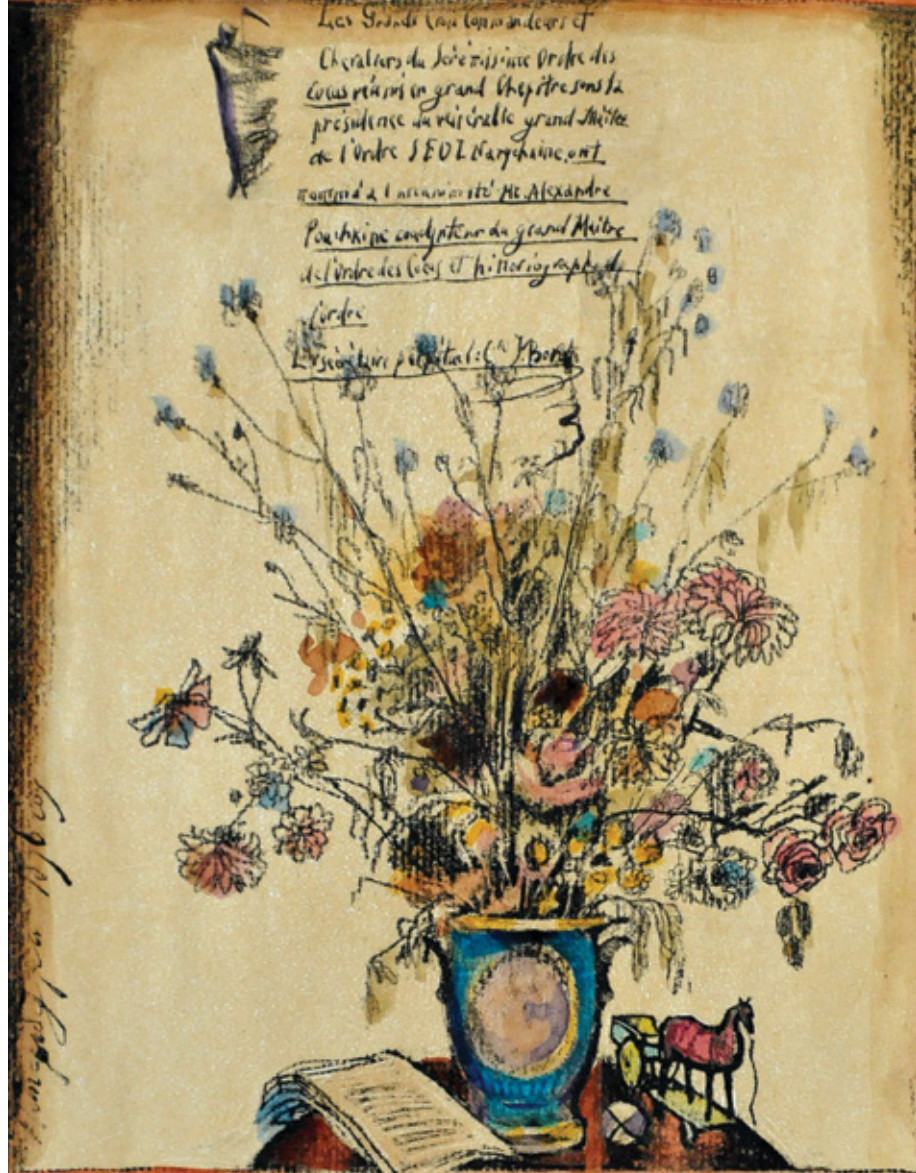 Les Grands Croix Commandeurs et
Chevaliers du Sérénissime Ordre des
Cocus réunis en grand Chapitre sous la
présidence du vénérable grand Maître
de l'Ordre S E
ont
nommé à l'unanimité Mr. Alexandre
Pouchkine coadjuteur du grand Maître
de l'Ordre des Cocus et historiographe de
l'ordre
Le sécrétaire perpétuel: Cte J. Borch